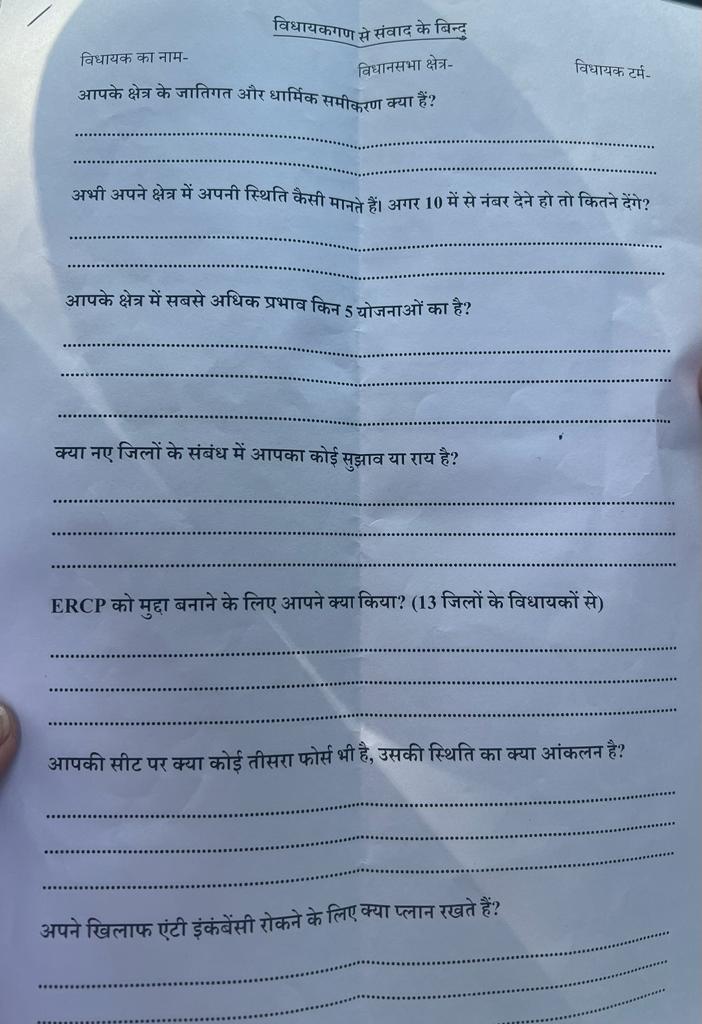 विधायकगण से संवाद के बिन्दु
विधायक का नाम- विधानसभा क्षेत्र- विधायक टर्म-
आपके क्षेत्र के जातिगत और धार्मिक समीकरण क्या हैं?
अभी अपने क्षेत्र में अपनी स्थिति कैसी मानते हैं। अगर 10 में से नंबर देने हो तो कितने देंगे?
आपके क्षेत्र में सबसे अधिक प्रभाव किन 5 योजनाओं का है?
क्या नए जिलों के संबंध में आपका कोई सुझाव या राय है?
ERCP को मुद्दा बनाने के लिए आपने क्या किया? (13 जिलों के विधायकों से)
आपकी सीट पर क्या कोई तीसरा फोर्स भी है, उसकी स्थिति का क्या आंकलन है?
अपने खिलाफ एंटी इंकंबेंसी रोकने के लिए क्या प्लान रखते हैं?